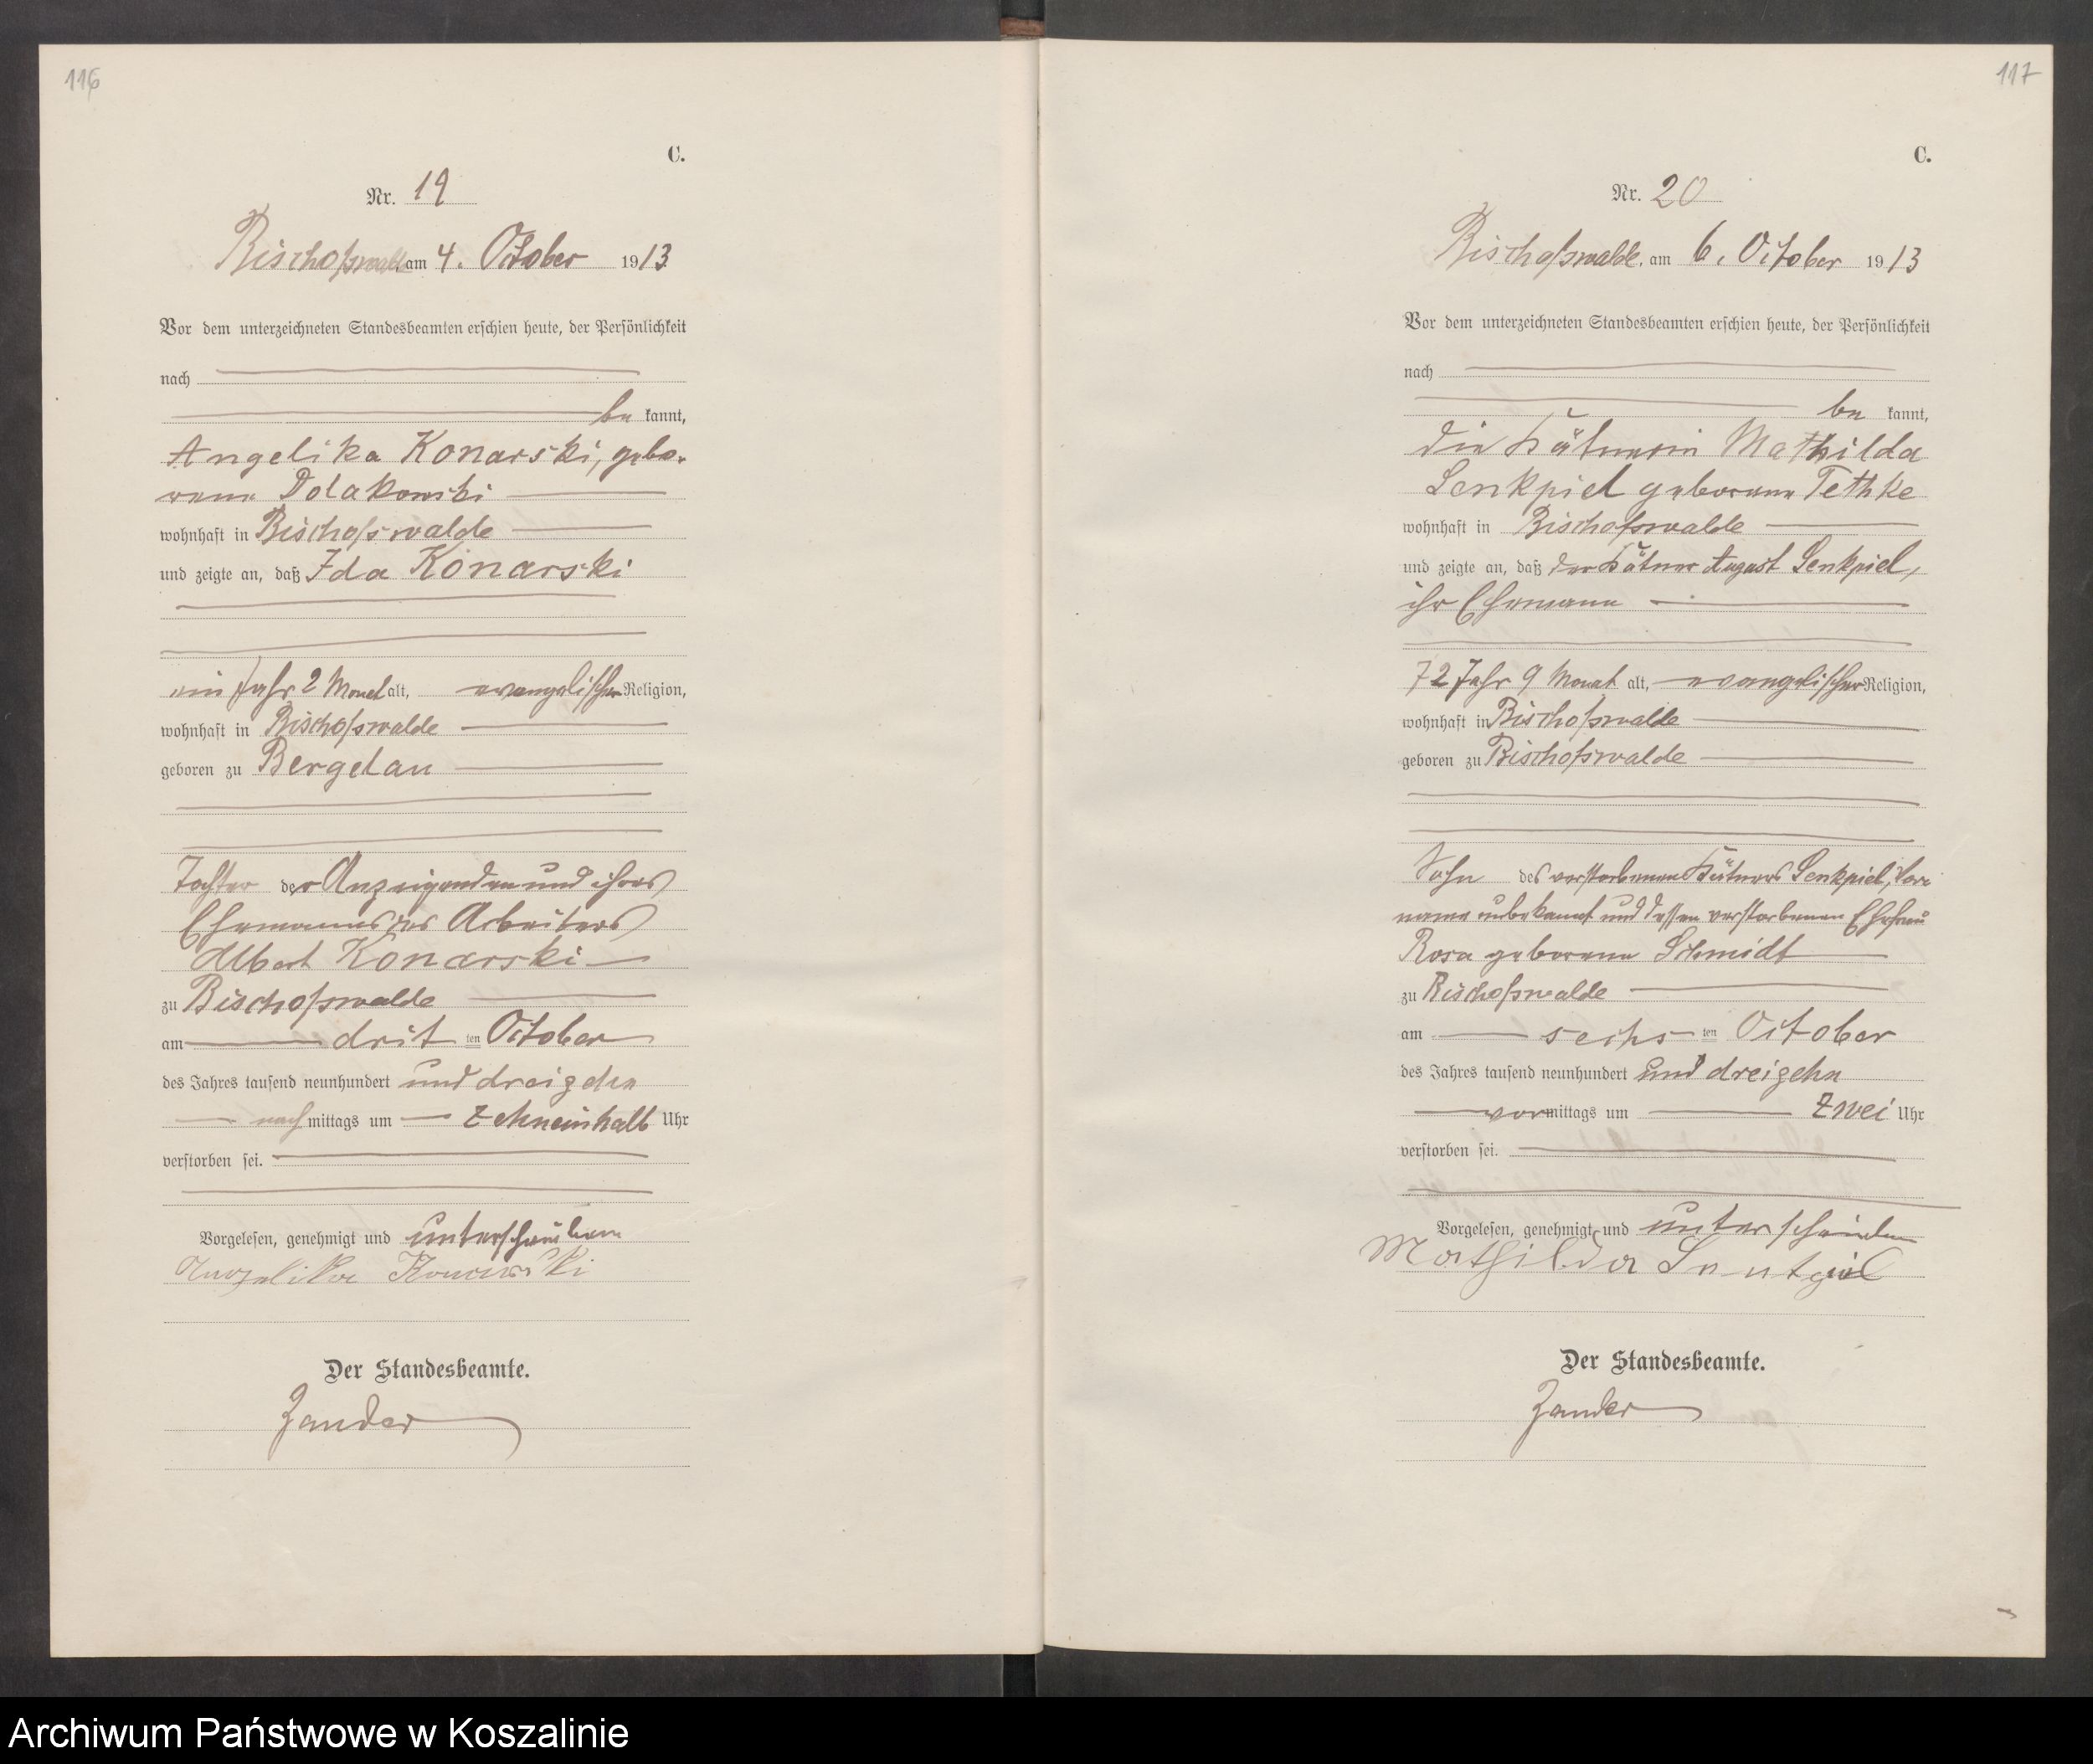 116
C.
Nr. 19
Bischofswalde, am 4. October 1913
Vor dem unterzeichneten Standesbeamten erschien heute, der Persönlichkeit
nach
be kannt,
Angelika Konarski, gebo-
rene Polakowski
wohnhaft in Bischofswalde
und zeigte an, daß Ida Konarski
ein Jahr 2 Monat alt, evangelischer Religion,
wohnhaft in Bischofswalde
geboren zu Bergelau
Tochter der Anzeigenden und ihres
Ehemannes des Arbeiters
Albert Konarski
zu Bischofswalde
am drit ten October
des Jahres tausend neunhundert und dreizehn
nach mittags um zehneinhalb Uhr
verstorben sei.
Vorgelesen, genehmigt und unterschrieben
Angelika Konarski
Der Standesbeamte.
Zander
117
C.
Nr. 20
Bischofswalde, am 6. October 1913
Vor dem unterzeichneten Standesbeamten erschien heute, der Persönlichkeit
nach
be kannt,
die Kätnerin Mathilda
Senkpiel geborene Tethke
wohnhaft in Bischofswalde
und zeigte an, daß der Kätner August Senkpiel,
ihr Ehemann
72 Jahr 9 Monat alt, evangelischer Religion,
wohnhaft in Bischofswalde
geboren zu Bischofswalde
Sohn des verstorbenen Kätners Senkpiel, Vor-
name unbekannt und dessen verstorbenen Ehefrau
Rosa geborene Schmidt
zu Bischofswalde
am sechs ten October
des Jahres tausend neunhundert und dreizehn
vormittags um zwei Uhr
verstorben sei.
Vorgelesen, genehmigt und unterschrieben
Mathilda Senkpiel
Der Standesbeamte.
Zander
Archiwum Państwowe w Koszalinie